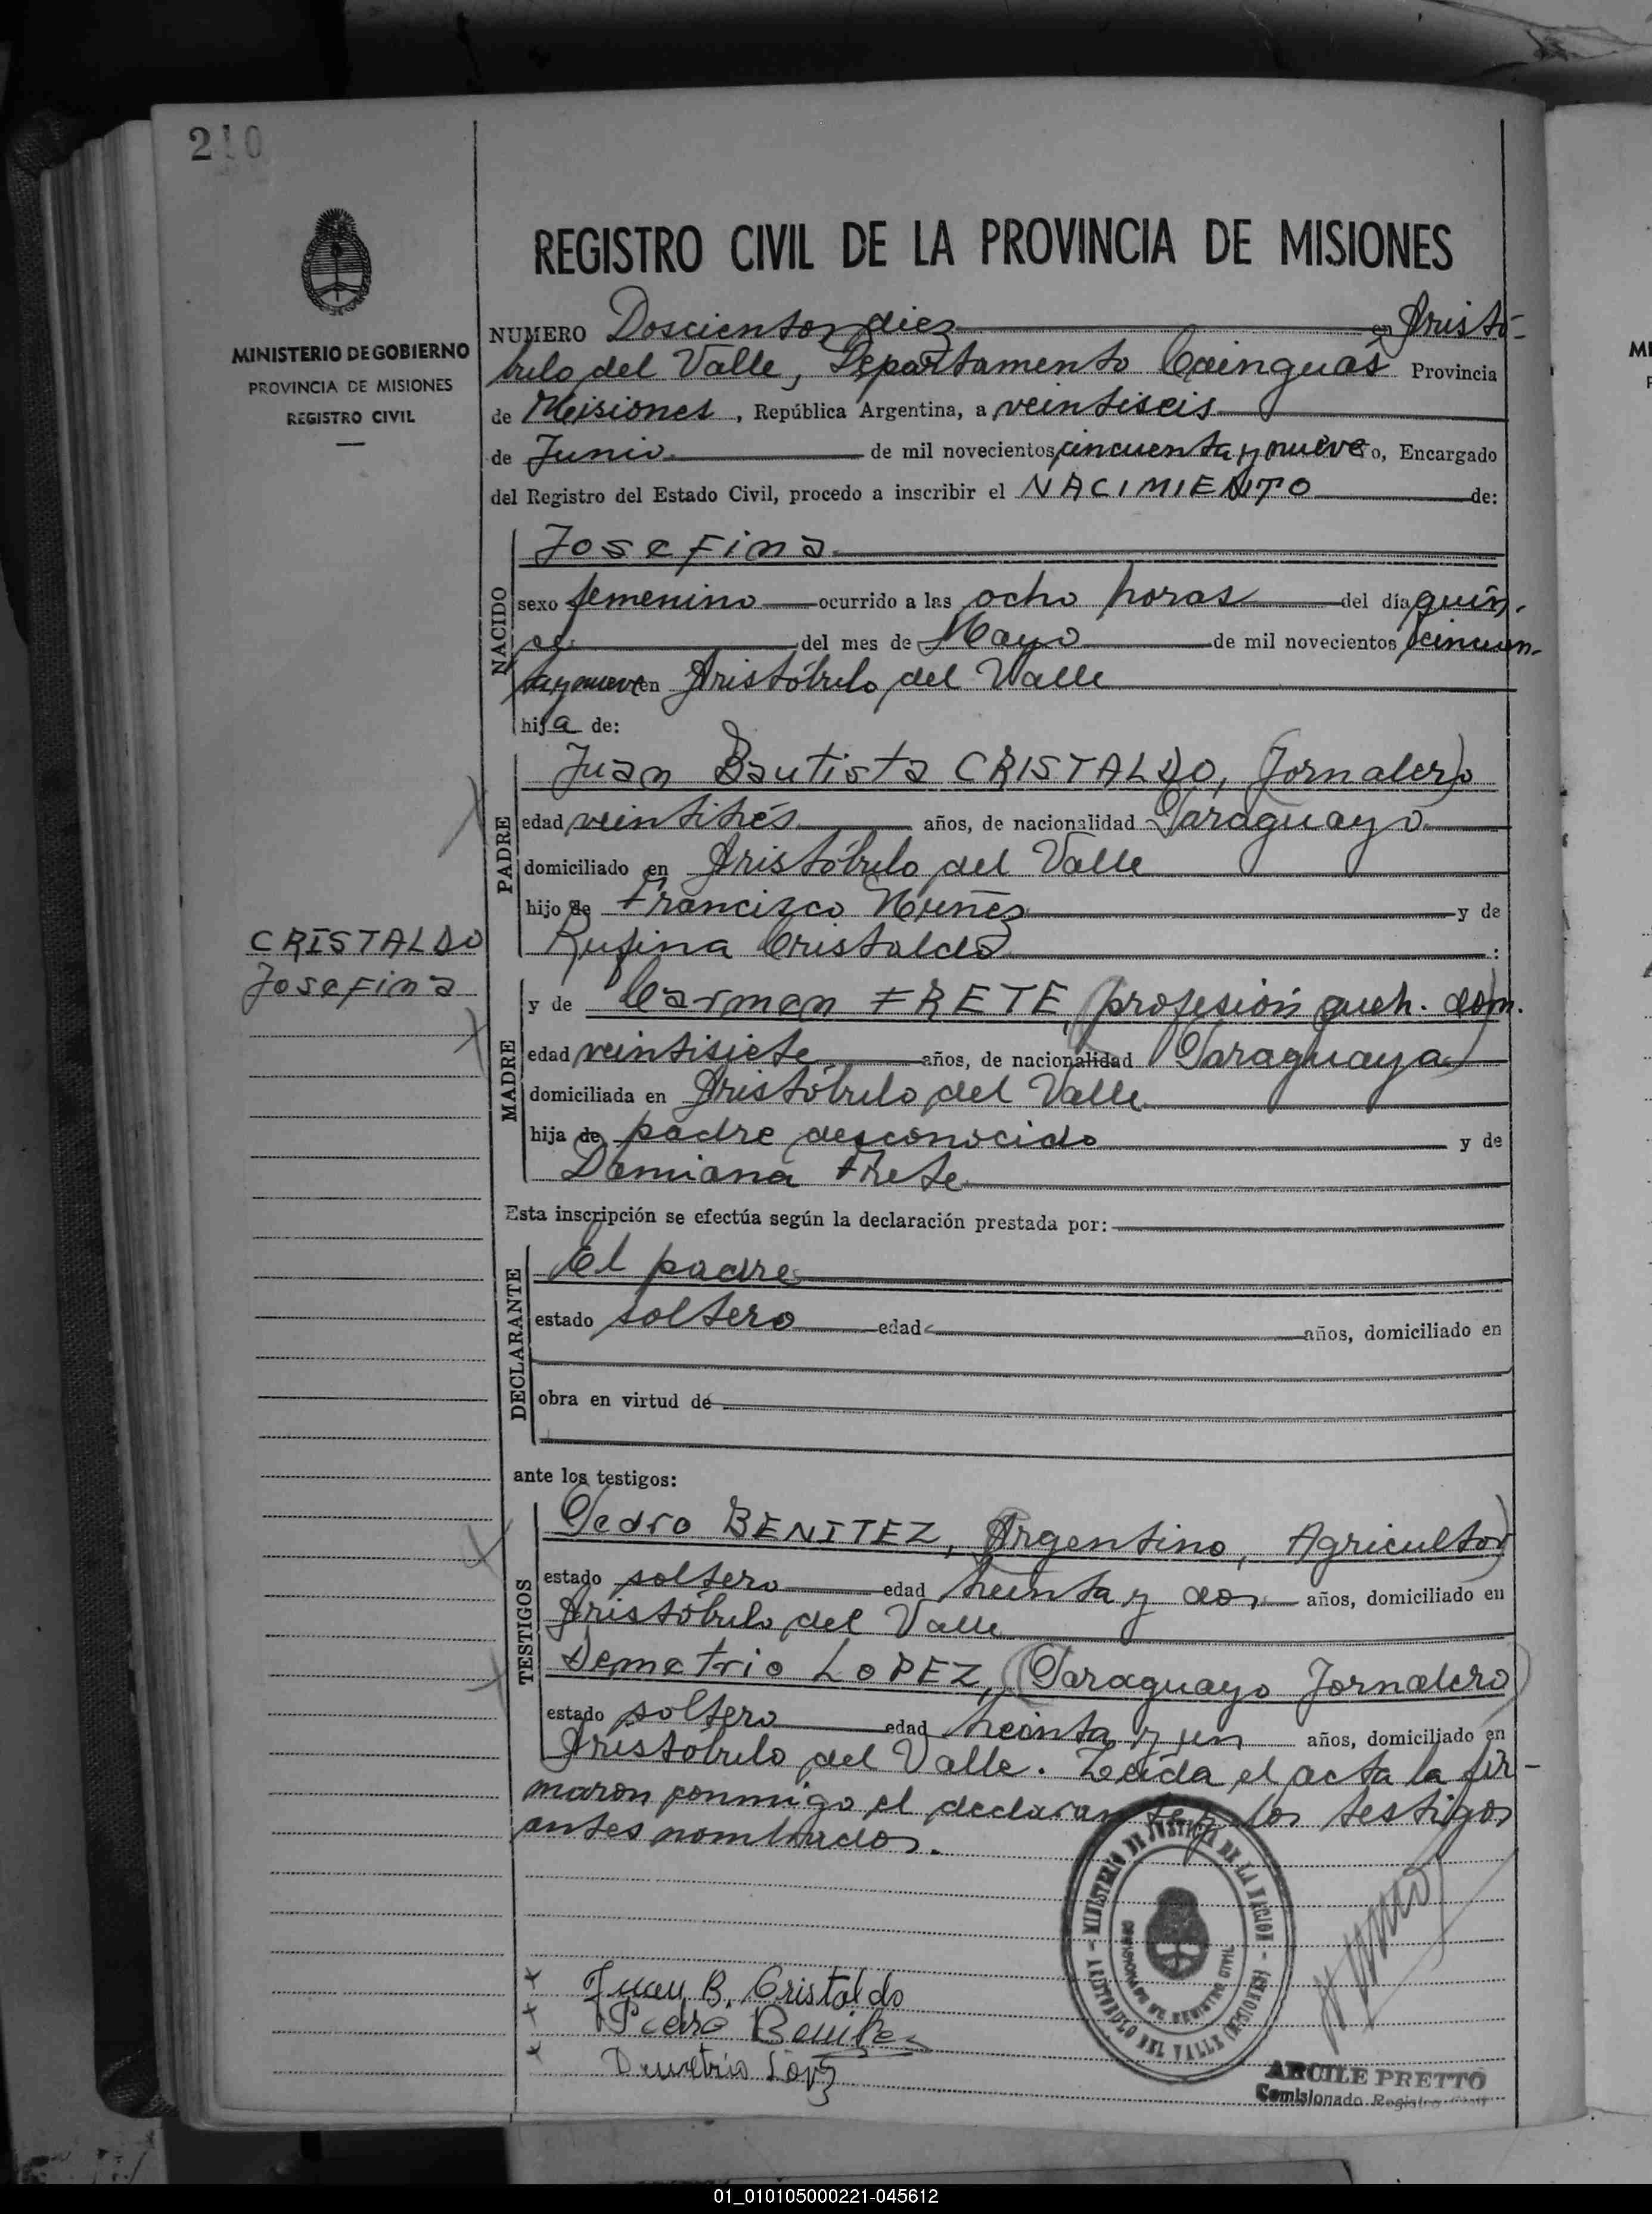 210
MINISTERIO DE GOBIERNO
PROVINCIA DE MISIONES
REGISTRO CIVIL
CRISTALDO
Josefina
REGISTRO CIVIL DE LA PROVINCIA DE MISIONES
NUMERO Doscientos diez en Aristó-
bulo del Valle, Departamento Cainguás Provincia
de Misiones, República Argentina, a veintiseis
de Junio de mil novecientos cincuenta y nueve o, Encargado
del Registro del Estado Civil, procedo a inscribir el NACIMIENTO de:
NACIDO
Josefina
sexo femenino ocurrido a las ocho horas del día quin-
ce del mes de Mayo de mil novecientos cincuen-
ta y nueve en Aristóbulo del Valle
hija de:
PADRE
Juan Bautista CRISTALDO, (Jornalero)
edad veintitrés años, de nacionalidad Paraguayo
domiciliado en Aristóbulo del Valle
hijo de Francisco Nuñez y de
Rufina Cristaldo :
MADRE
y de Carmen FRETE, (profesión queh. dom.
edad veintisiete años, de nacionalidad Paraguaya)
domiciliada en Aristóbulo del Valle
hija de padre desconocido y de
Damiana Frete
Esta inscripción se efectúa según la declaración prestada por:
DECLARANTE
El padre
estado soltero edad años, domiciliado en
obra en virtud de
ante los testigos:
TESTIGOS
Pedro BENITEZ, (Argentino, Agricultor)
estado soltero edad treinta y dos años, domiciliado en
Aristóbulo del Valle
Demetrio LOPEZ, (Paraguayo Jornalero)
estado soltero edad treinta y un años, domiciliado en
Aristobulo del Valle. Leida el acta la fir-
maron conmigo el declarante y los testigos
antes nombrados.
MINISTERIO DE JUSTICIA DE LA NACION
ARISTOBULO DEL VALLE (MISIONES)
COMISIONADO DE REGISTRO CIVIL
x Juan B. Cristaldo
x Pedro Benitez
x Demetrio Lopz
ARCILE PRETTO
Comisionado Registro Civil
01_010105000221-045612